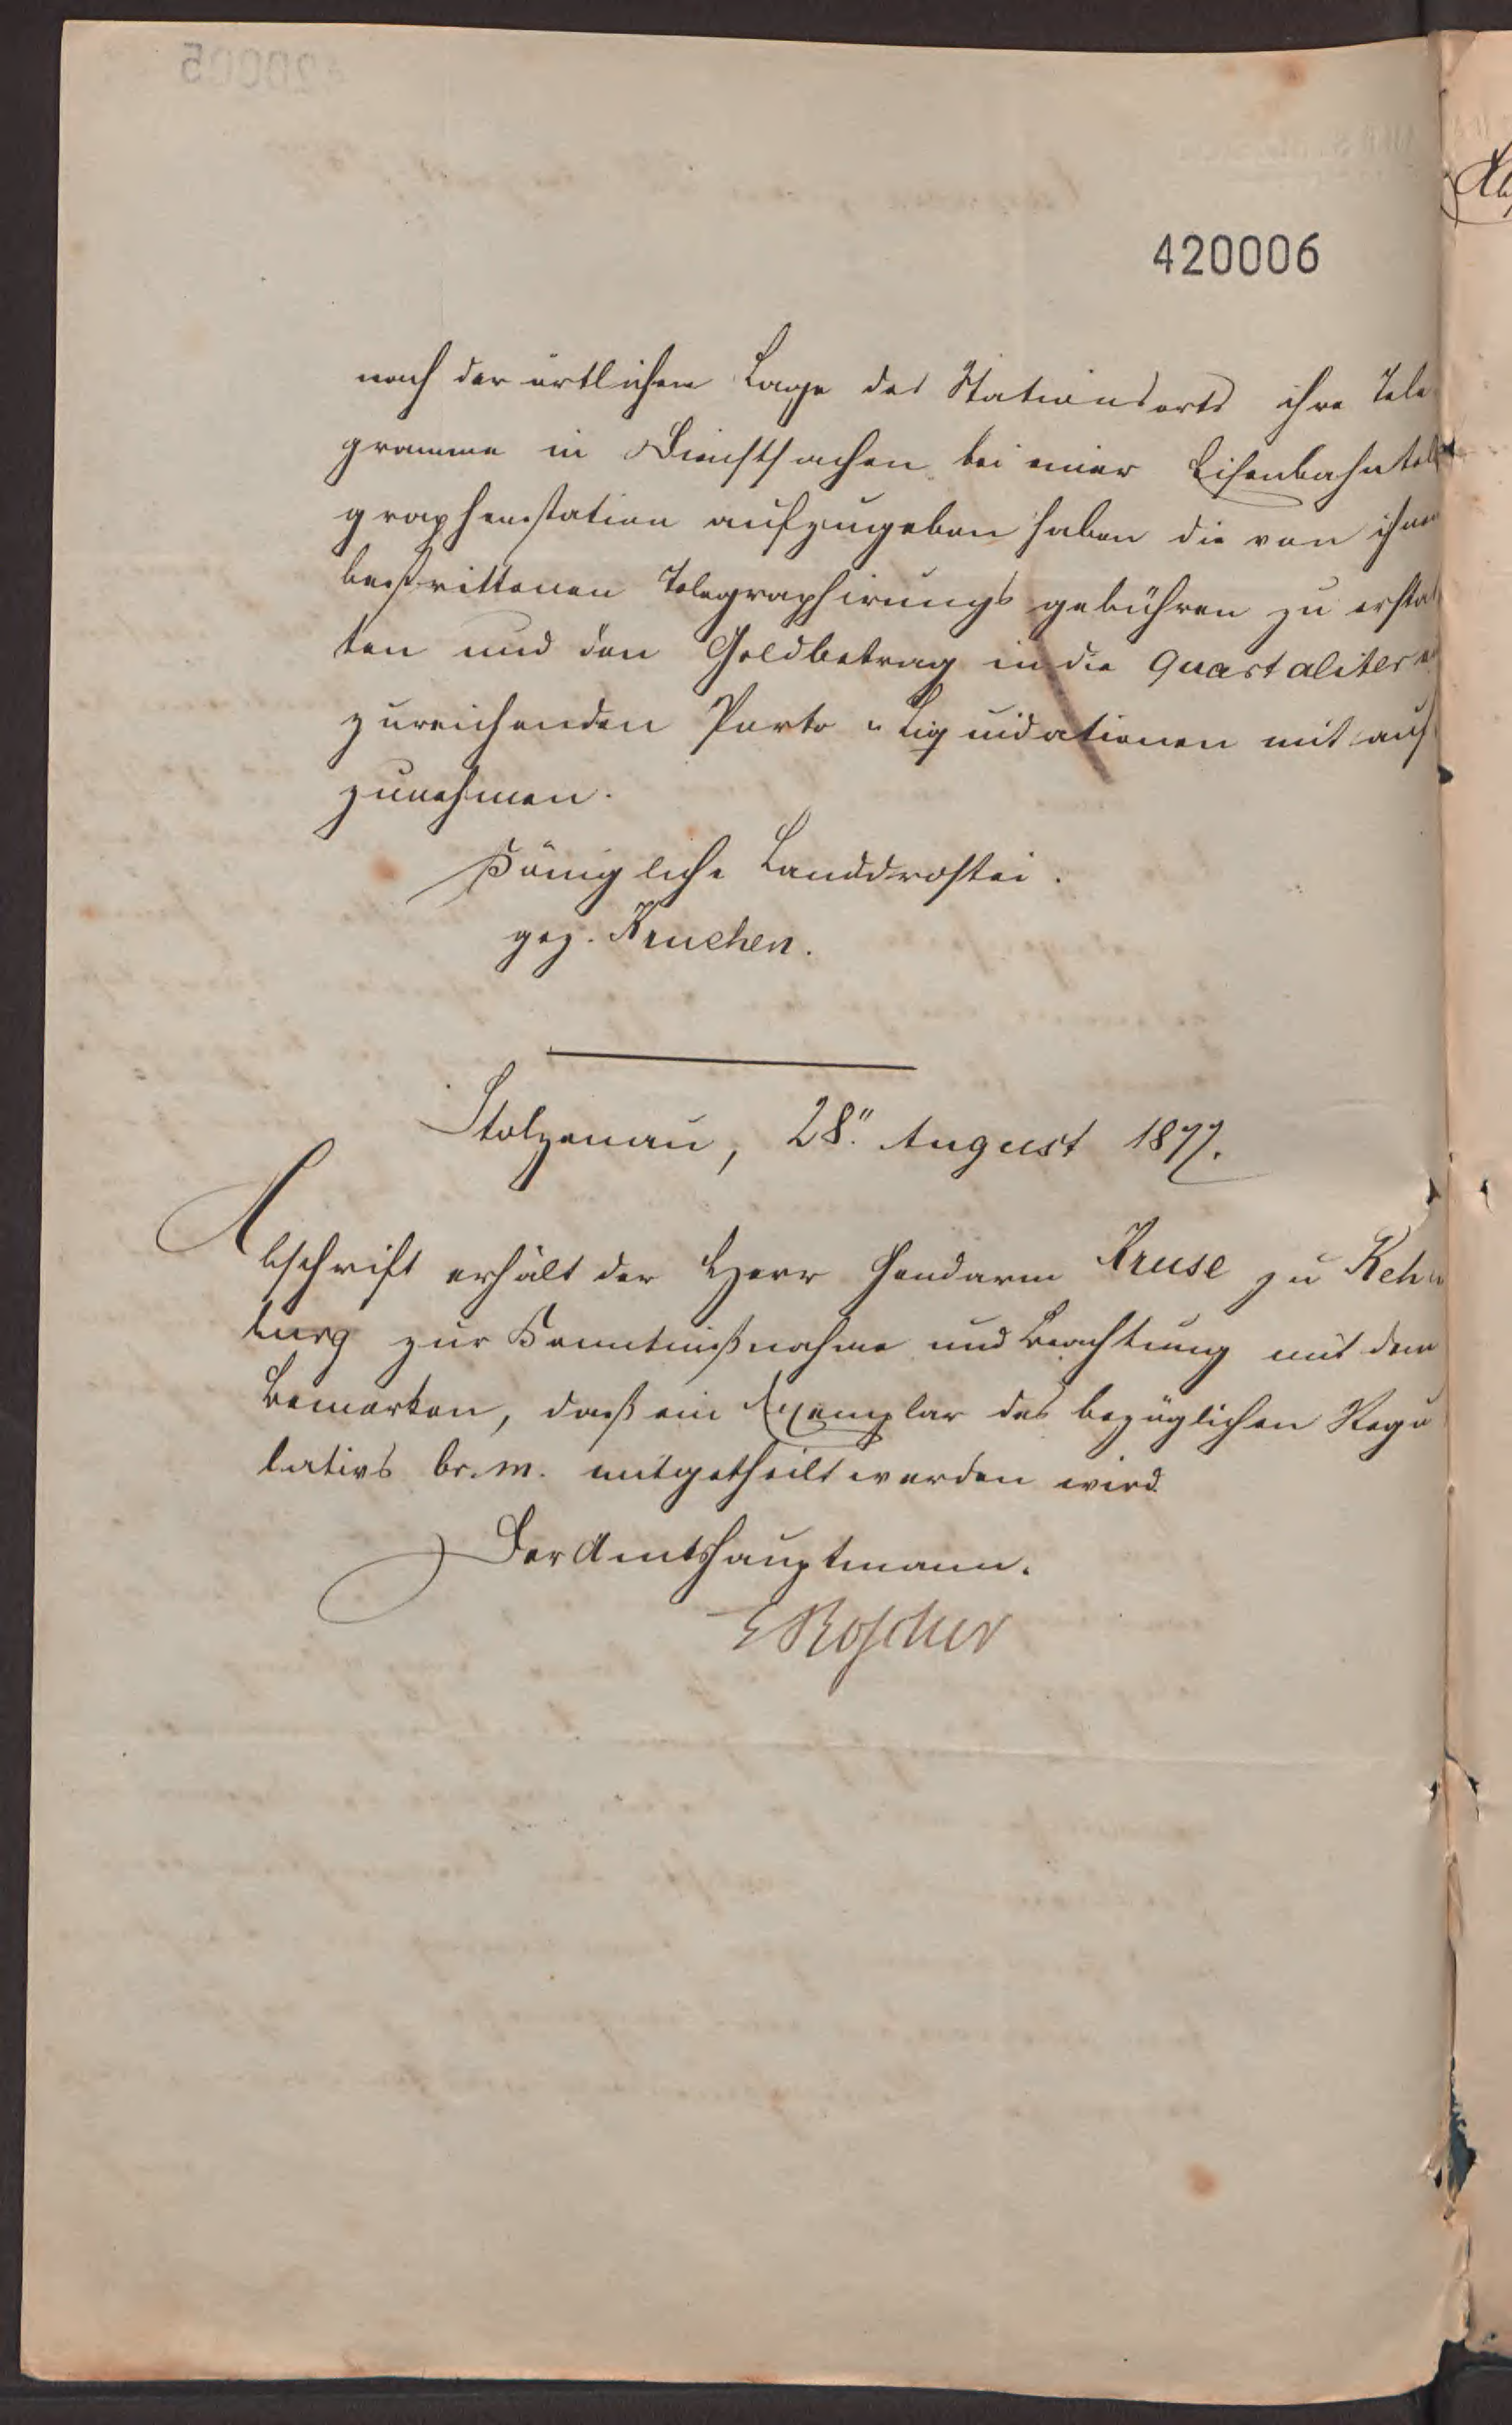 420006
nach der örtlichen Lage des Stationsorts ihre Tele
gramme in Dienstsachen bei einer Eisenbahntele
graphenstation aufzugeben haben die von ihnen
bestrittenen Telegraphirungsgebühren zu erstat
ten und den Geldbetrag in die Quartaliter ein
zureichenden Porto-Liquidationen mit auf
zunehmen.
Königliche Landdrostei.
gez. Kruchen.
Stolzenau, 28. August 1877.
Abschrift erhält der Herr Gendarm Kruse zu Reh
burg zur Kenntnißnahme und Beachtung mit dem
Bemerken, daß ein Exemplar des bezüglichen Regu
lativs br. m. mitgetheilt werden wird.
Der Amtshauptmann.
E Roscher